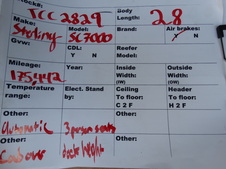 TCC 2829
Body
Length: 28
Make:
Model:
Brand:
Air brakes:
Sterling
SC7000
Y N
Gvw:
CDL:
Y N
Reefer
Model:
Mileage:
Year:
Inside
Width:
(IW)
Outside
Width:
(OW)
175,442
Temperature
range:
Elect. Stand
by:
Ceiling
To floor:
C 2 F
Header
To floor:
H 2 F
Other:
Automatic
3 person seats
Other:
Cabover